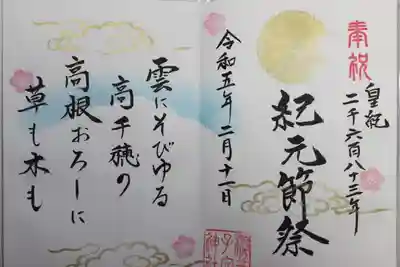 奉祝
皇紀
二千六百八十三年
紀元節祭
令和五年二月十一日
雲にそびゆる
高千穂の
高根おろしに
草も木も